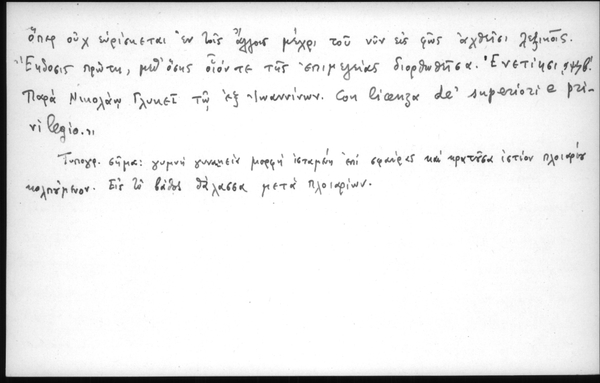 ὅπερ οὐχ εὑρίσκεται ἐν τοῖς ἄλλοις μέχρι τοῦ νῦν εἰς φῶς ἀχθεῖσι λεξικοῖς.
Ἔκδοσις πρώτη, μεθ' ὅσης οἷόν τε τῆς ἐπιμελείας διορθωθεῖσα. Ἐνετίησι
Παρὰ Νικολάῳ Γλυκεῖ τῷ ἐξ Ἰωαννίνων. Con licenza de' superiori e pri-
vilegio.»
Τυπογρ. σῆμα: γυμνὴ γυναικεία μορφὴ ἱσταμένη ἐπὶ σφαίρας καὶ κρατοῦσα ἱστίον πλοιαρίου
κολπούμενον. Εἰς τὸ βάθος θάλασσα μετὰ πλοιαρίων.